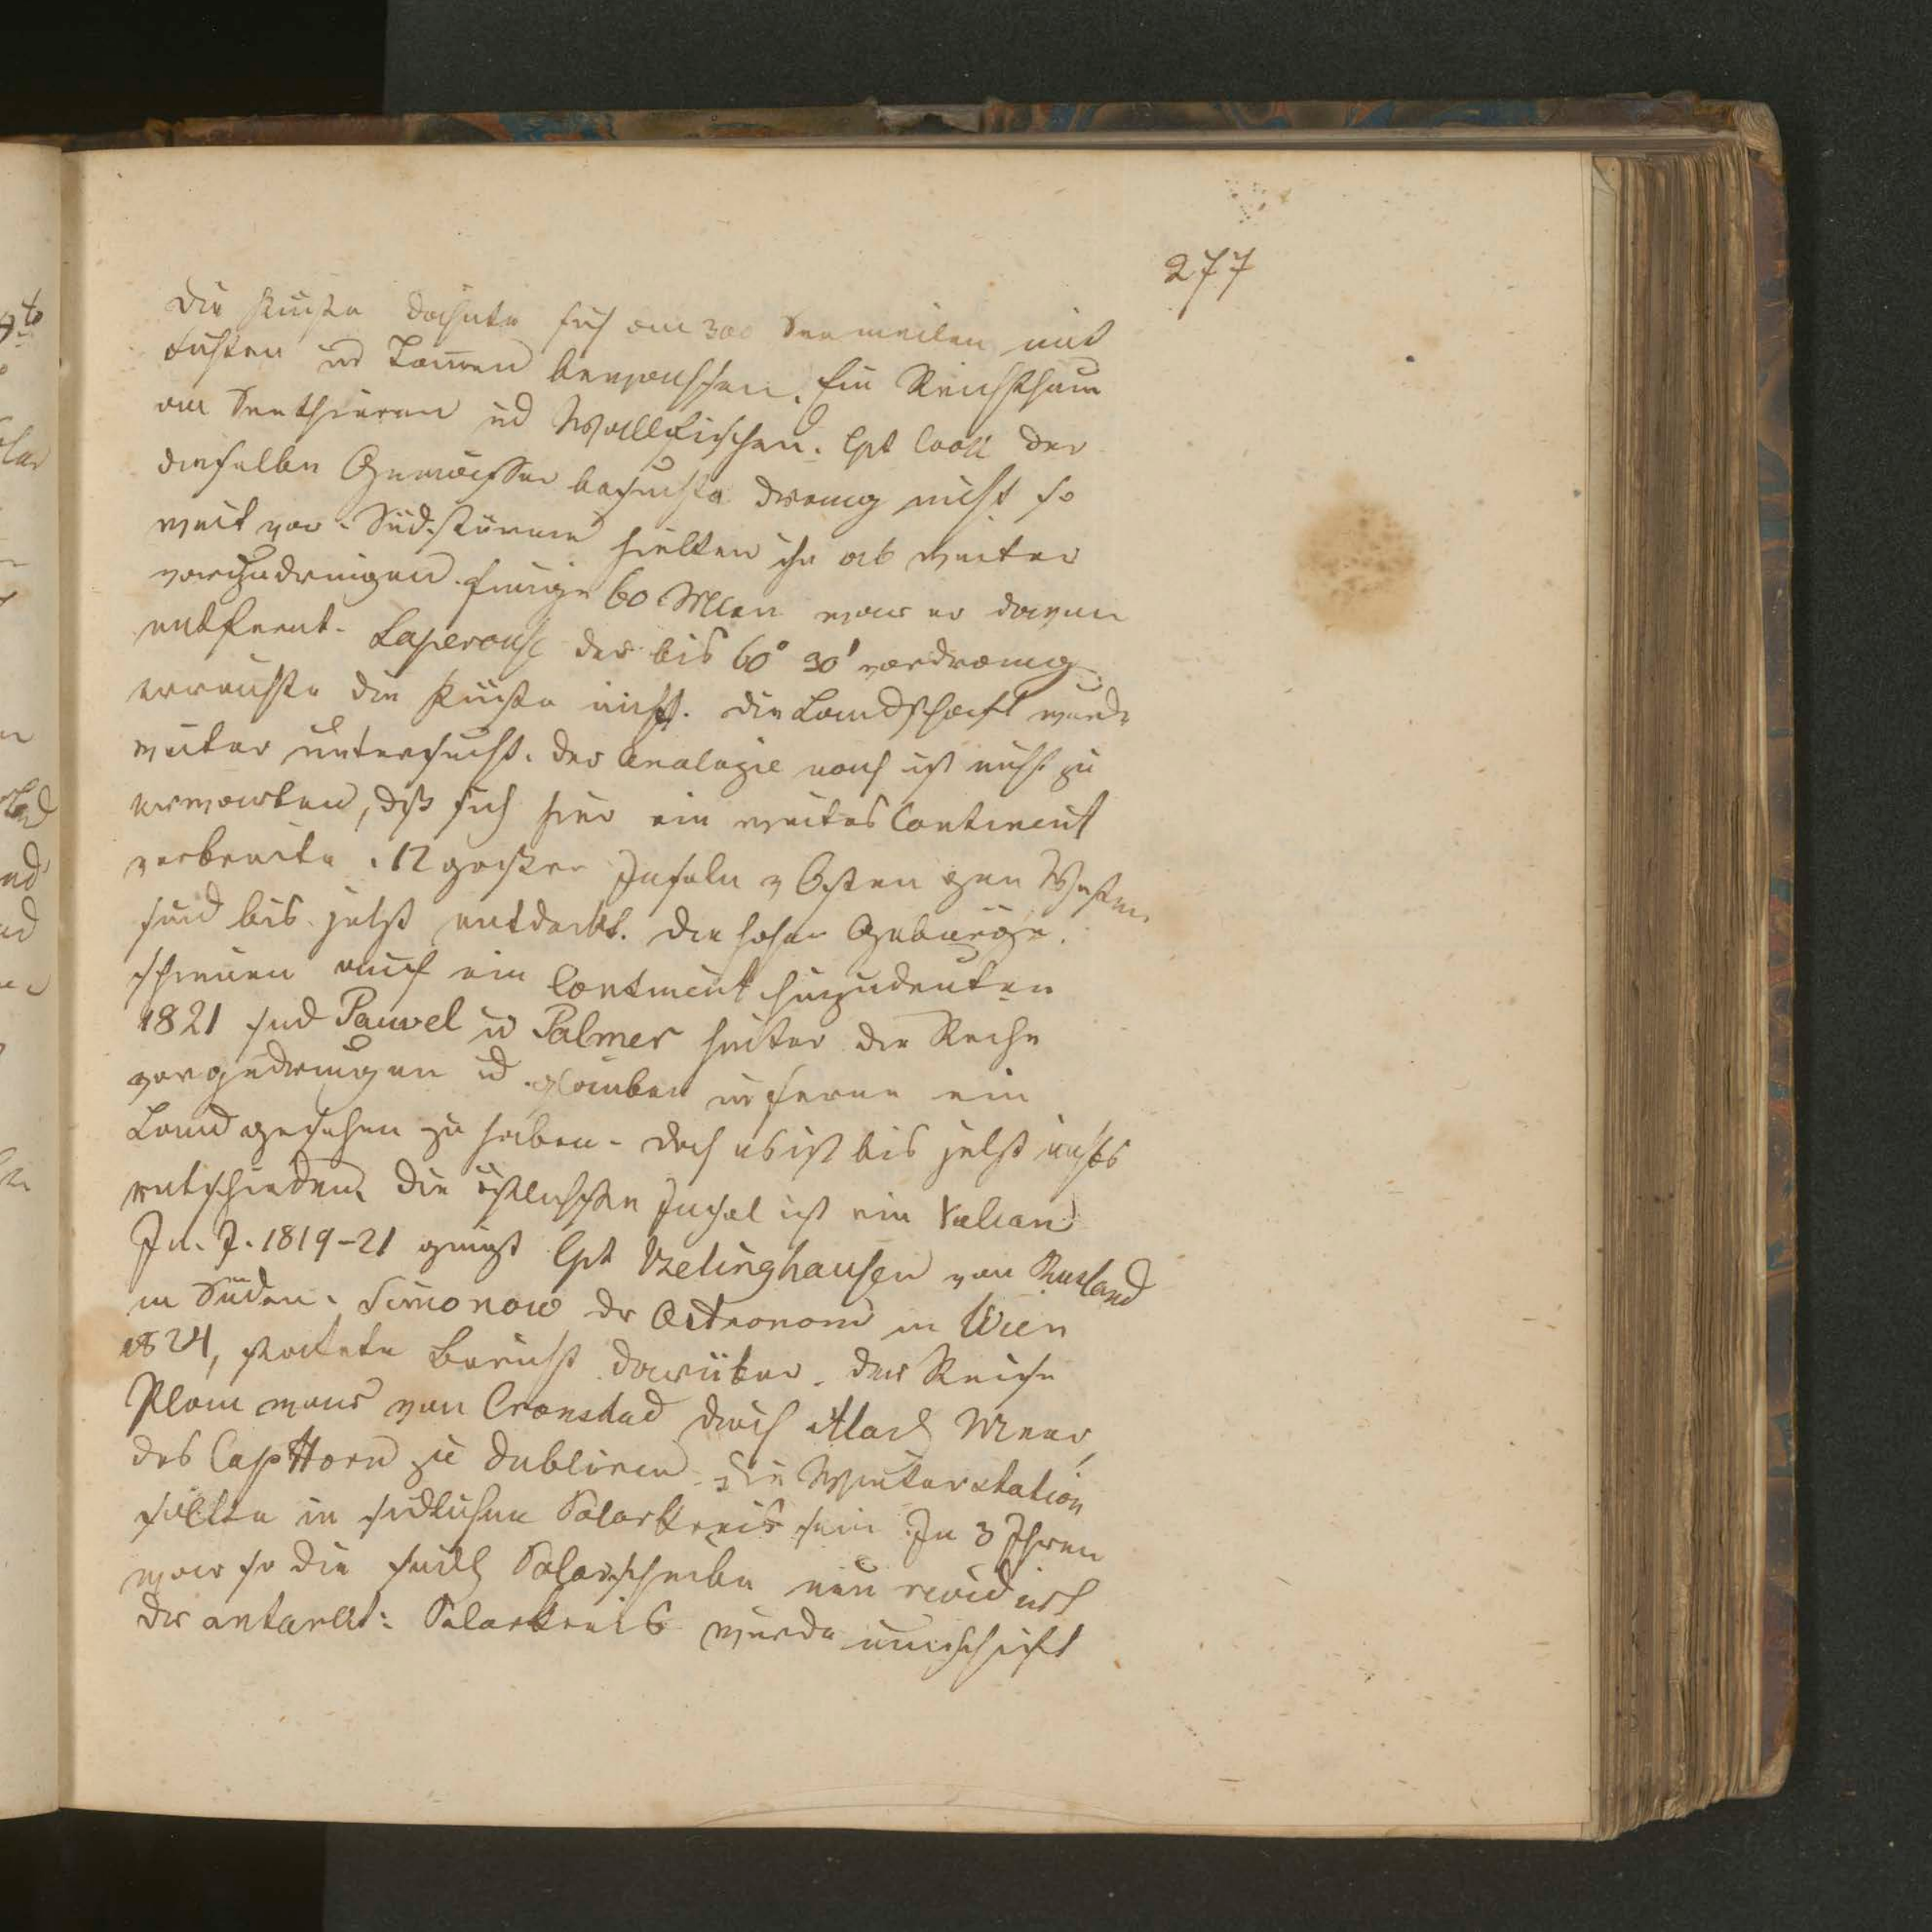 277
Die Küste dehnte sich an 300 Seemeilen mit
Fichten ud Tannen bewachsen. Ein Reichthum
an Seethieren ud Wallfischen. Cpt Cook der
dieselben Gewässer besuchte drang nicht so
weit vor. Südstürme hielten ihn ab weiter
vorzudringen. Einige 60 Mln war er davon
entfernt. Laperouse der bis 60° 30' vordrang
erreichte die Küste nicht. Die Landschaft wurde
weiter untersucht. Der Analogie nach ist nicht zu
erwarten, dß sich hier ein weites Continent
verbreite. 12 großer Inseln v Osten gen Westen
sind bis jetzt entdeckt. Die hohen Gebürge
scheinen auf ein Continent hinzudeuten
1821 sind Pauvel u Palmer hinter die Reihe
vorgedrungen ud glauben in ferne ein
Land gesehen zu haben. doch es ist bis jetzt nichts
entschieden. Die östlichste Insel ist ein Vulcan
In. J. 1819-21 ging Cpt Belinghausen von Rusland
in Süden. Simonow dr Astronom in Wien
1824, stattete Bericht darüber. Der Reise
Plan war von Cronstad durch Atlant Meer,
das Cap Horn zu dubliren. Die Winterstation
sollte in südlichen Polarkreis sein. In 3 Jhren
war so die südl Polarscheibe
der antarkt: Polarkreis wurde umschift